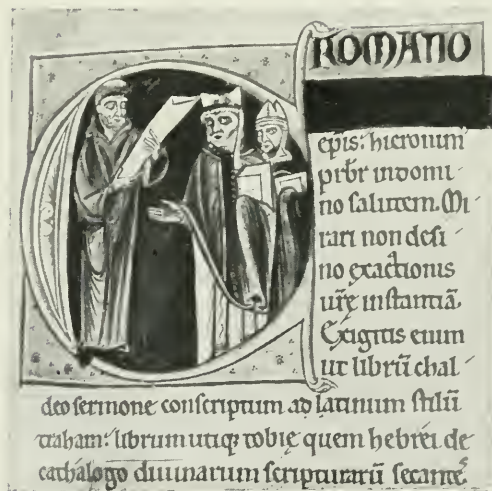 CROMATIO
ep̄is: hieronim̄
prb̄r in domi
no salutem. Mi
rari non desi
no exactionis
ur̄ę instantiā.
Exigitis enim
ut librū chal
deo sermone conscriptum ad latinum stilū
traham: librum utiq; tobię quem hebrei de
cathalogo diuinarum scripturarū secantes